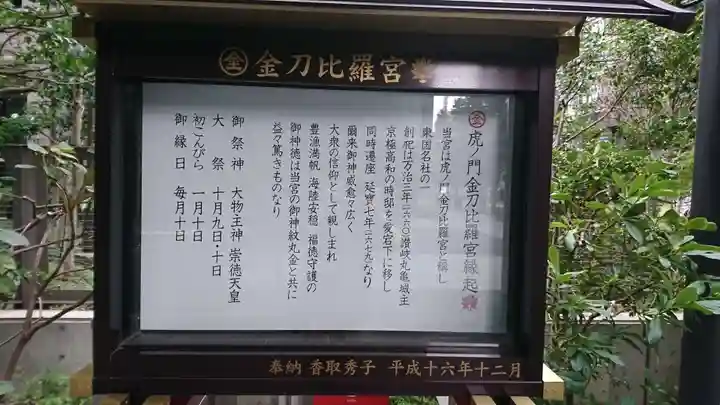 金 金刀比羅宮
金 虎ノ門金刀比羅宮縁起
当宮は虎ノ門金刀比羅宮と称し
東国名社の一
創祀は万治三年(一六六〇)讃岐丸亀城主
京極高和の時邸を愛宕下に移し
同時遷座 延寶七年(一六七九)なり
爾来御神威愈々広く
大衆の信仰として親しまれ
豊漁満帆 海陸安穏 福徳守護の
御神徳は当宮の御神紋丸金と共に
益々篤きものなり
御祭神 大物主神 崇徳天皇
大祭 十月九日・十日
初こんぴら 一月十日
御縁日 毎月十日
奉納 香取秀子 平成十六年十二月